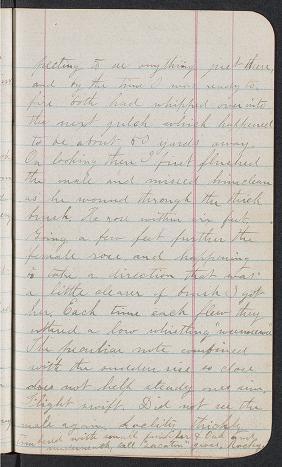 pecting to see anything just there,
and by the time I was ready to
fire both had whipped over into
the next gulch which happened
to be about 50 yards away.
On looking there I first flushed
the male and missed him clean
as he wound through the thick
brush. He rose within six feet.
Going a few feet further the
female rose and happening
to take a direction that was
a little clearer of brush I got
her. Each time each flew they
uttered a low whistling
The peculiar note combined
with the sudden rise so close
does not help steady one's aim.
Flight swift. Did not see the
male again. Locality thickly
with small
all "zacaton"